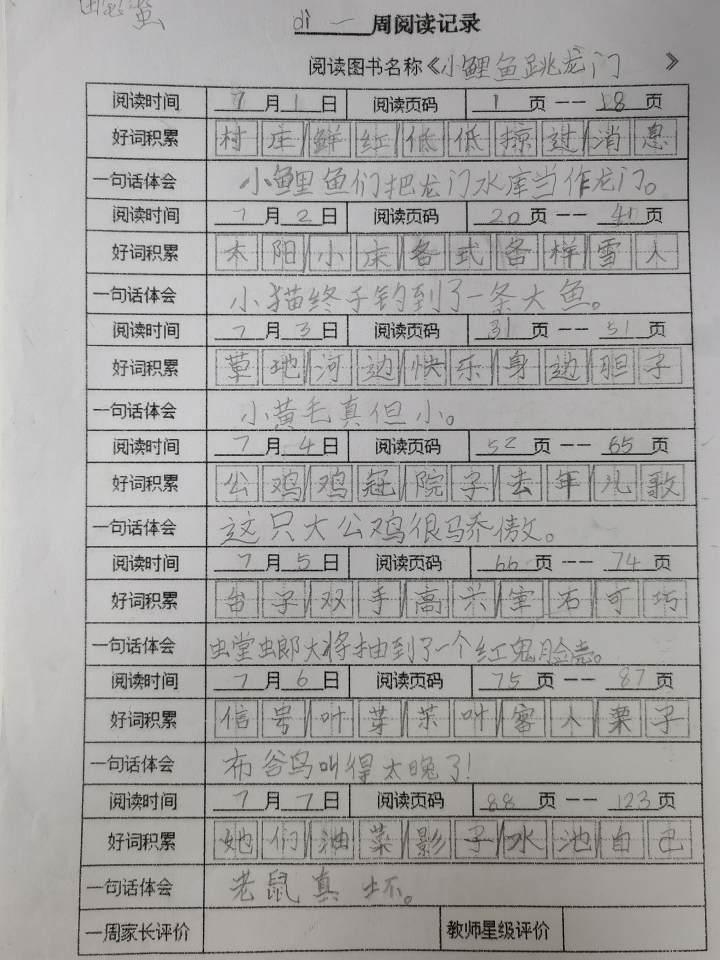 dì 一 周阅读记录
阅读图书名称《小鲤鱼跳龙门》
阅读时间 7月1日 阅读页码 1页——18页
好词积累 村庄/鲜红/低低/掠过/消息
一句话体会 小鲤鱼们把龙门水库当作龙门。
阅读时间 7月2日 阅读页码 20页——41页
好词积累 太阳/小床/各式各样/雪人
一句话体会 小猫终于钓到了一条大鱼。
阅读时间 7月3日 阅读页码 31页——51页
好词积累 草地/河边/快乐/身边/胆子
一句话体会 小黄毛真但小。
阅读时间 7月4日 阅读页码 52页——65页
好词积累 公鸡/鸡冠/院子/去年/儿歌
一句话体会 这只大公鸡很骄傲。
阅读时间 7月5日 阅读页码 66页——74页
好词积累 台子/双手/高兴/室石/可巧
一句话体会 螳螂大将抽到了一个红鬼脸壳。
阅读时间 7月6日 阅读页码 75页——87页
好词积累 信号/叶芽/茶叶/客人/栗子
一句话体会 布谷鸟叫得太晚了!
阅读时间 7月7日 阅读页码 88页——123页
好词积累 她们/油菜/影子/水池/自己
一句话体会 老鼠真坏。
一周家长评价 教师星级评价